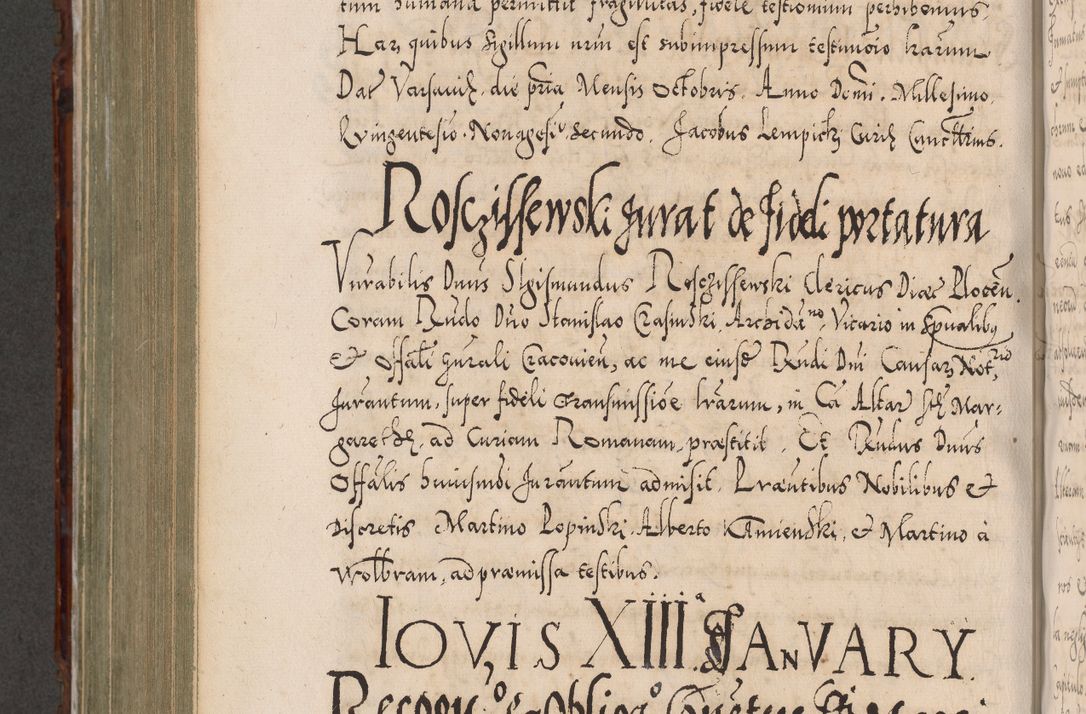 tum humana permittit fragilitas, fidele testimonium perhibemus.
Harz quibus sigillum nrm est subimpressum testimoio lrarum
Dat Varsaviæ. die pria Mensis Octobris. Anno Domi. Millesimo.
Qvingentesio. Nonagesi° Secundo. Jacobus Lempicki Curiæ Cancttrius.
Rosczissewski jurat de fideli portatura
Vnrabilis Dnus Sigismundus Rosczissewski Clericus Diæc Plocen.
Coram Rndo Dno Stanislao Crasinski, Archidæno, Vicario in Spualibus
et Offali gnrali Cracovien, ac me eiusd Rndi Dni Causarz Notrio
Jurantum, super fideli transmissioe lrarum, in Ca Altar Stæ Mar=
garethæ, ad Curiam Romanam, præstitit. Et Rndus Dnus
Offalis huiusmdi Jurantum admisit. Præntibus Nobilibus et
Discretis Martino Popinski, Alberto Kamienski, et Martino à
Wolbram, ad præmissa testibus.
IOVIS XIII.a JANVARY.